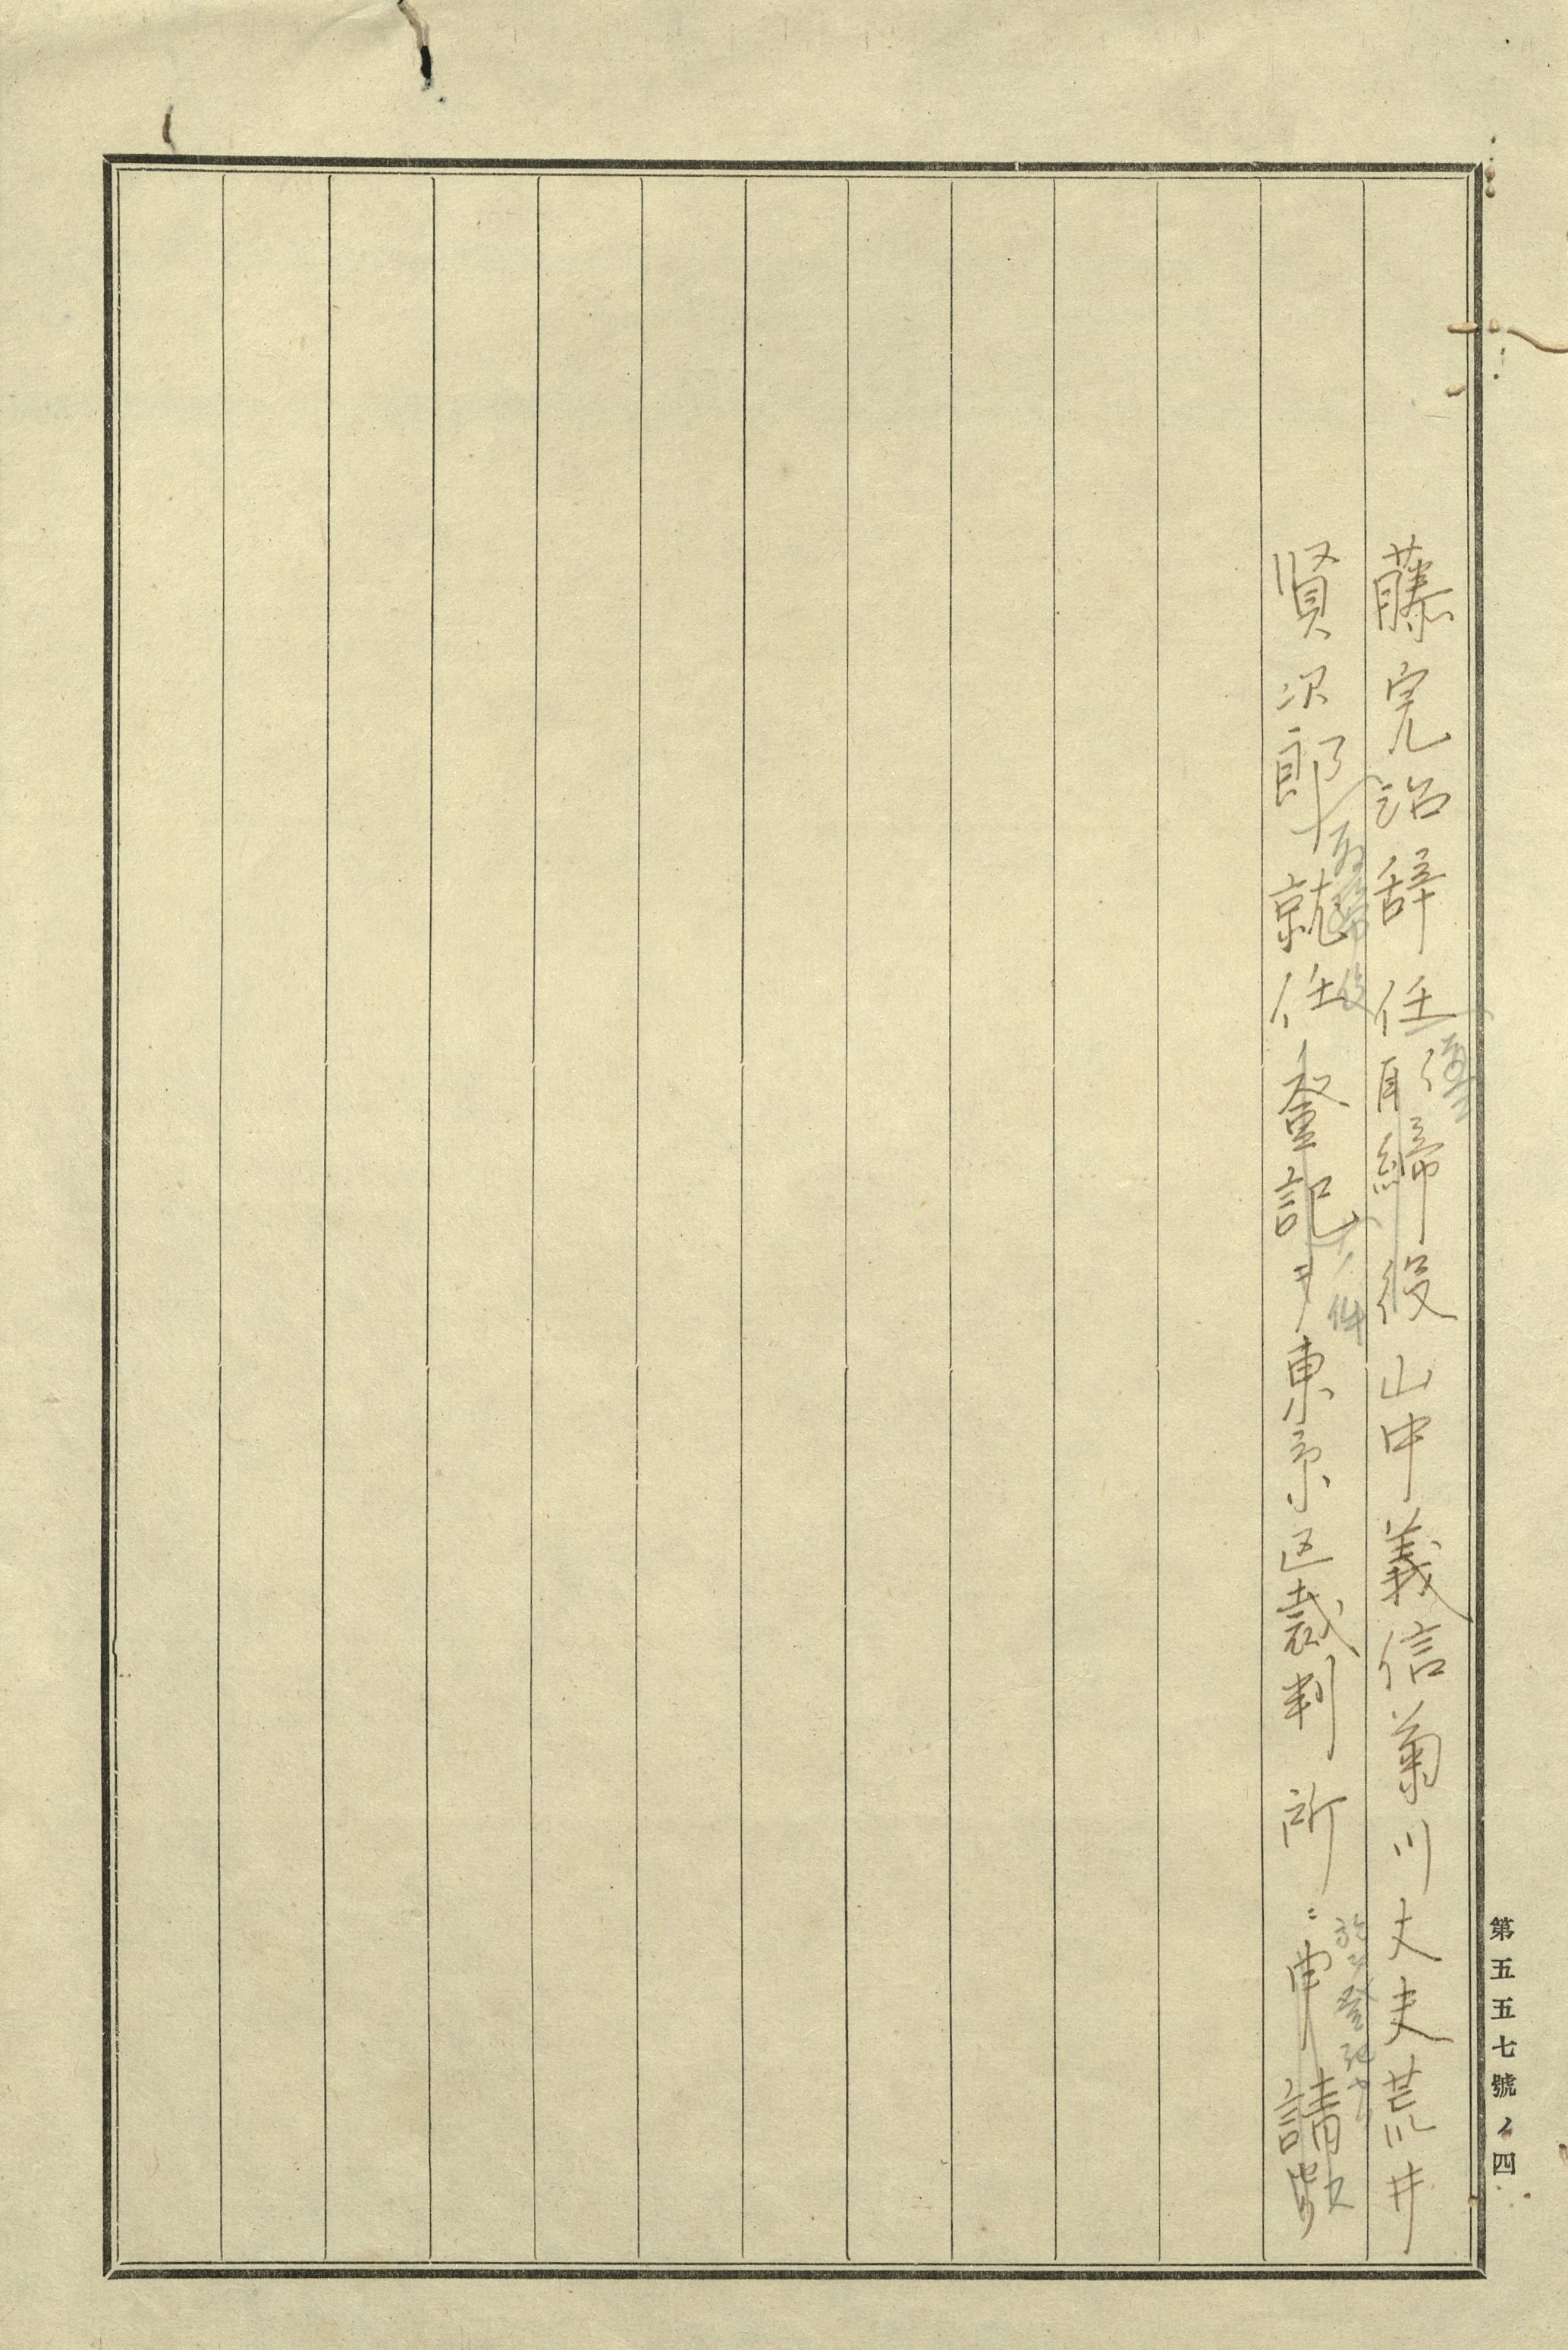 藤完治辞任取締役山中義信菊川丈夫荒井
賢次郎就任登記ヲ東京区裁判所ニ申請
取締役
件
登記
第五五七號ノ四